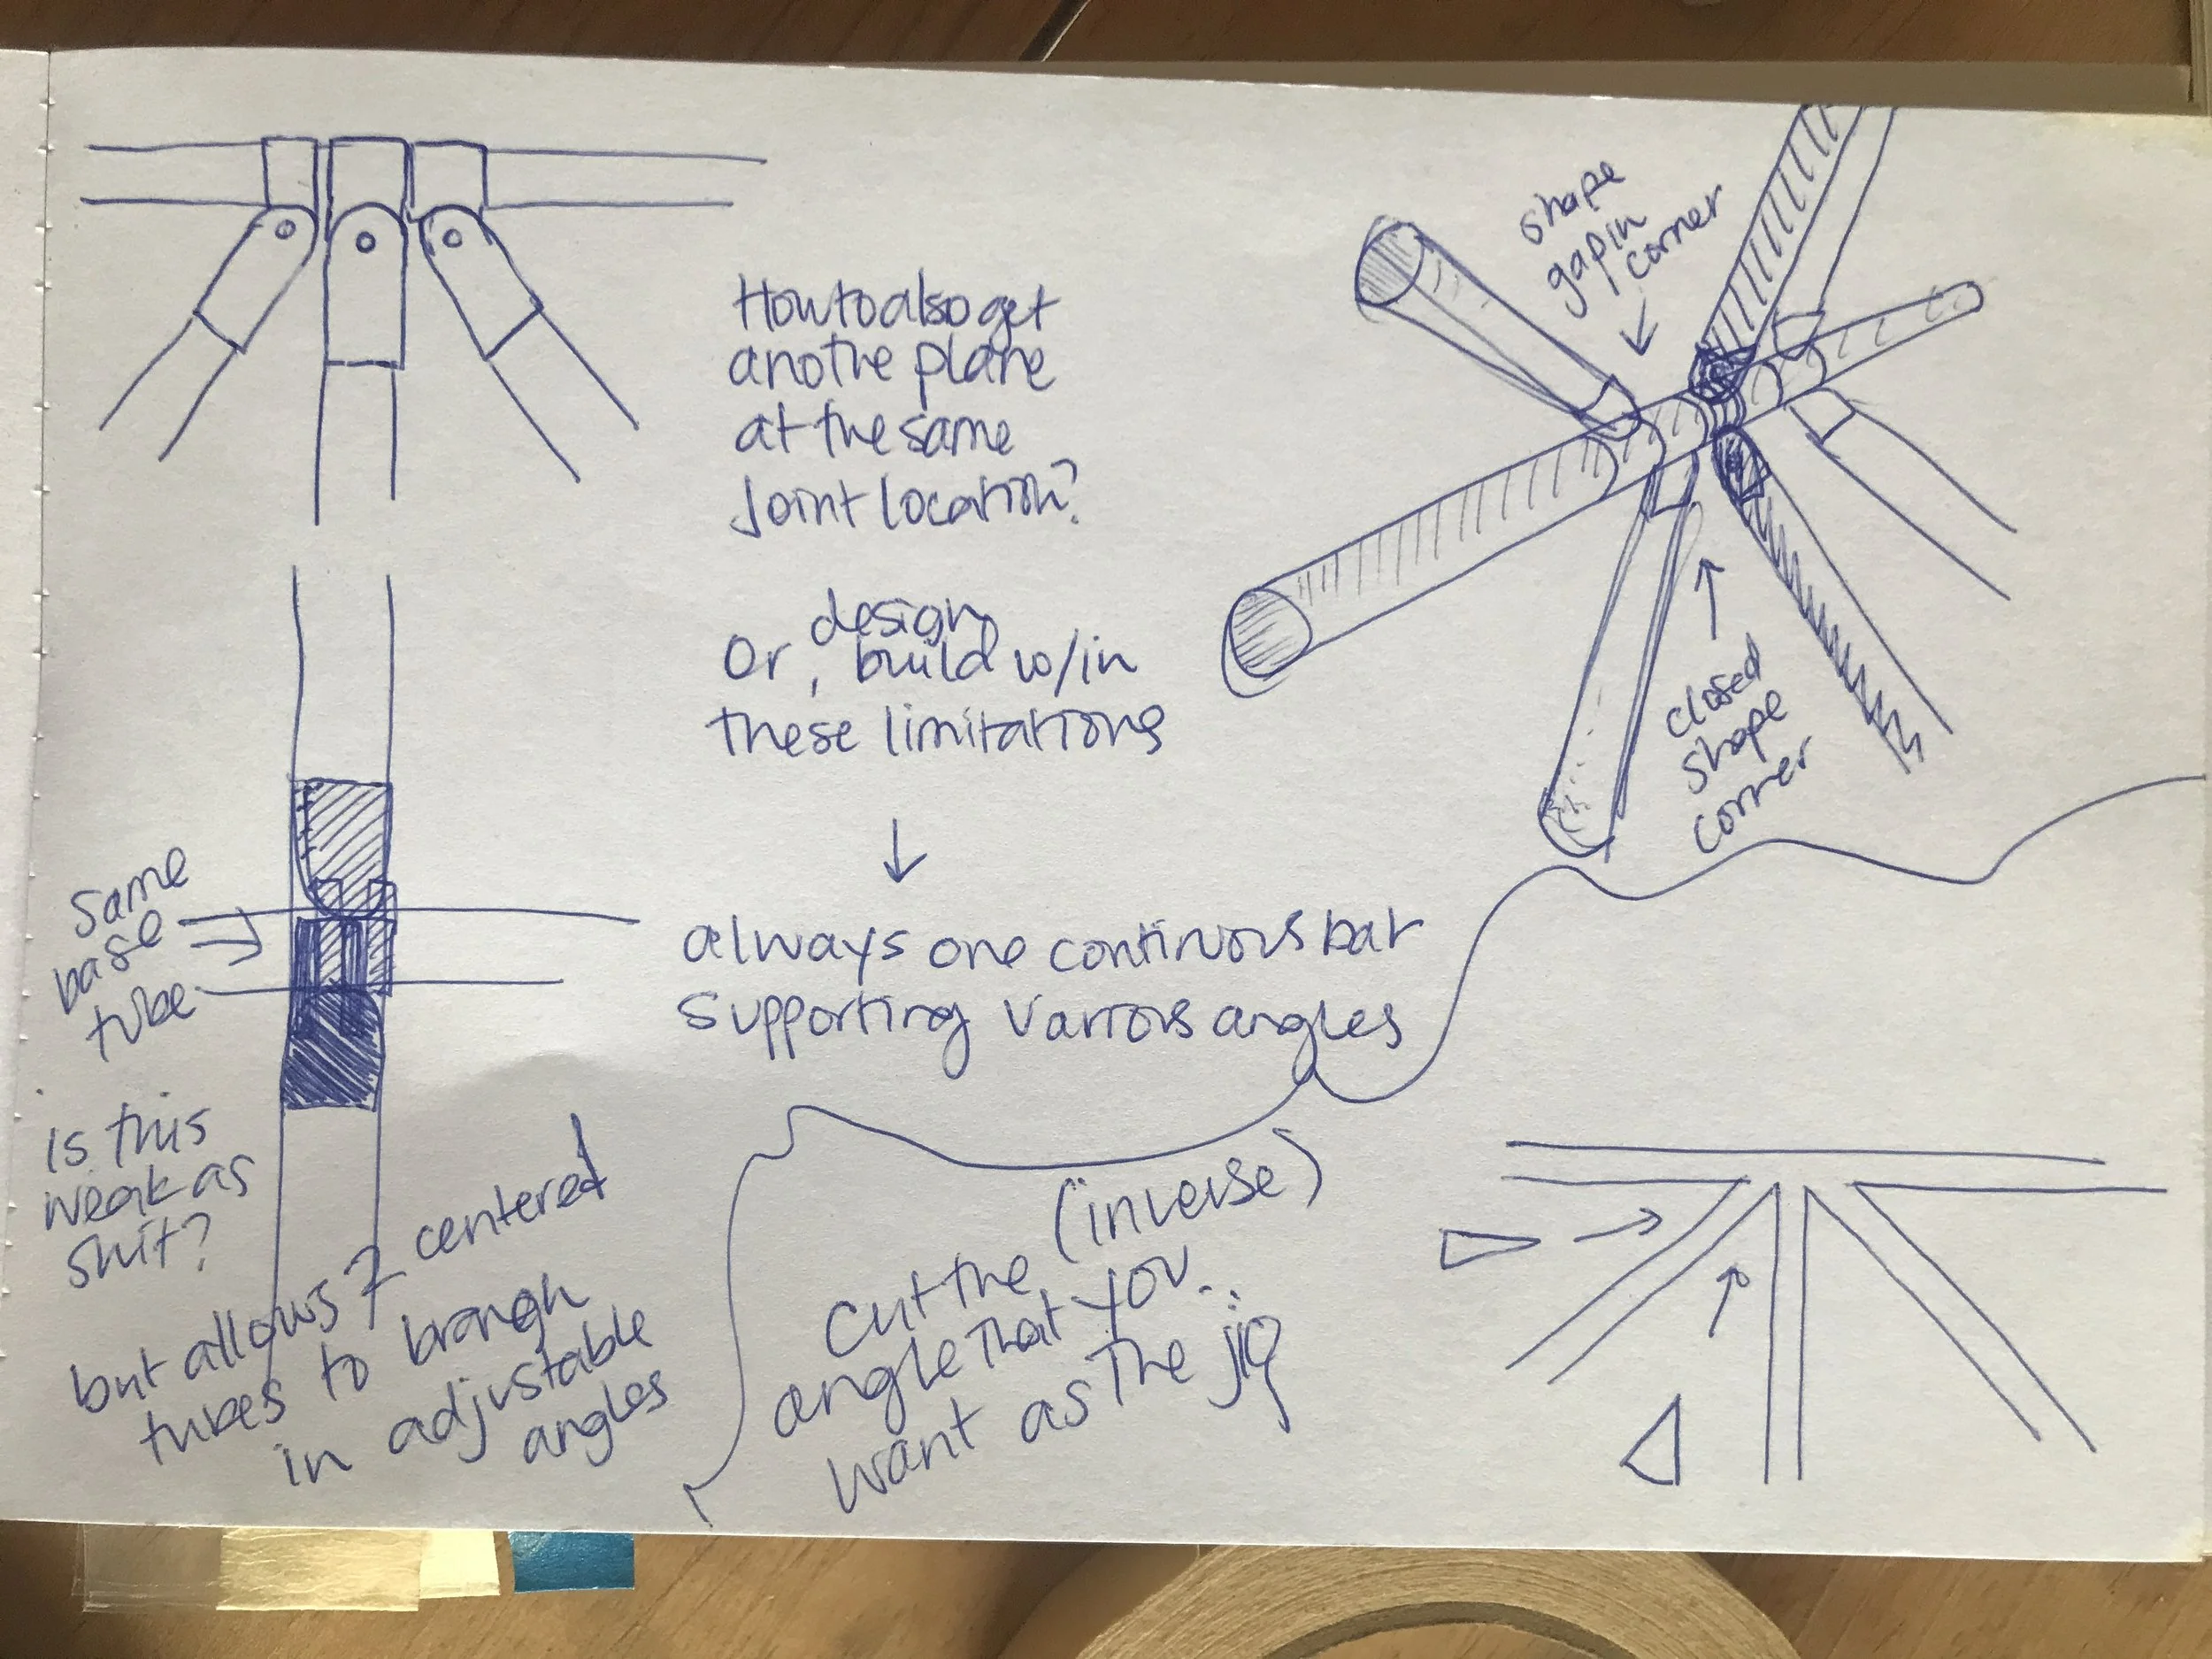 How to also get
anothe plane
at the same
joint location?
Or, design
build w/in
these limitations
↓
always one continuous bar
supporting various angles
shape
gap in
corner
closed
shape
corner
Same
base
tube
is this
weak as
shit?
but allows 2 centered
tubes to branch
in adjustable
angles
cut the (inverse)
angle that you
want as the jig